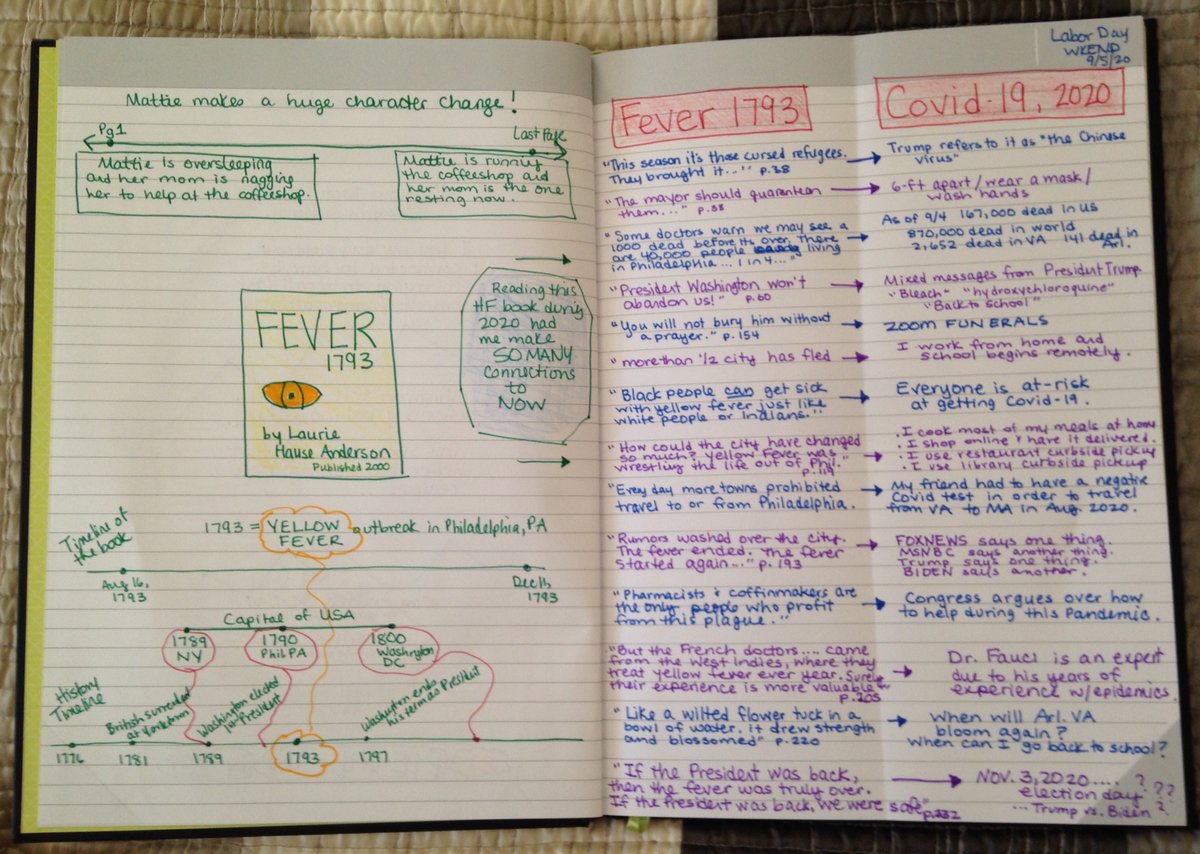 Mattie makes a huge character change!
Pg 1
Last Page
Mattie is oversleeping
and her mom is nagging
her to help at the coffeeshop.
Mattie is running
the coffeeshop and
her mom is the one
resting now.
FEVER
1793
by Laurie
Hause Anderson
Published 2000
Reading this
HF book during
2020 had
me make
SO MANY
connections
to
NOW
1793 = YELLOW outbreak in Philadelphia, PA
FEVER
Timeline of
the book
Aug 16,
1793
Dec 11,
1793
Capital of USA
1789
NY
1790
Phil PA
1800
Washington
DC
History
Timeline
British surrender
at Yorktown
Washington elected
1st President
Washington ends
his term as President
1776
1781
1789
1793
1797
Labor Day
WKEND
9/5/20
Fever 1793
Covid-19, 2020
"This season it's those cursed refugees.
They brought it..." p.38
Trump refers to it as "the Chinese
virus"
"The mayor should quaranteen
them..." p.38
6-ft apart/wear a mask/
wash hands
"Some doctors warn we may see a
1000 dead before its over. There
are 40,000 people living
in Philadelphia... 1 in 4..."
As of 9/4 167,000 dead in US
870,000 dead in world
2,652 dead in VA 141 dead in
Arl.
"President Washington won't
abandon us!" p.60
Mixed messages from President Trump
"Bleach" "hydroxychloroquine"
"Back to school"
"You will not bury him without
a prayer." p.154
ZOOM FUNERALS
"more than 1/2 city has fled
I work from home and
school begins remotely.
"Black people can get sick
with yellow fever just like
white people or Indians..."
Everyone is at-risk
at getting Covid-19.
"How could the city have changed
so much? Yellow Fever was
wrestling the life out of Phil."
p.119
• I cook most of my meals at home
• I shop online & have it delivered.
• I use restaurant curbside pickup
• I use library curbside pickup
"Every day more towns prohibited
travel to or from Philadelphia.
My friend had to have a negative
Covid test in order to travel
from VA to MA in Aug. 2020.
"Rumors washed over the city.
The fever ended. The fever
started again..." p. 193
FOXNEWS says one thing.
MSNBC says another thing.
Trump says one thing.
BIDEN says another.
"Pharmacists & coffinmakers are
the only people who profit
from this plague."
Congress argues over how
to help during this Pandemic.
"But the French doctors.... came
from the West Indies, where they
treat yellow fever ever year. Surely
their experience is more valuable"
p.205
Dr. Fauci is an expert
due to his years of
experience w/epidemics.
"Like a wilted flower tuck in a
bowl of water. it drew strength
and blossomed" p.220
When will Arl. VA
bloom again?
When can I go back to school?
"If the President was back,
then the fever was truly over.
If the president was back, we were safe"
p.232
NOV. 3, 2020.... ?
election day ??
... Trump vs. Biden ?